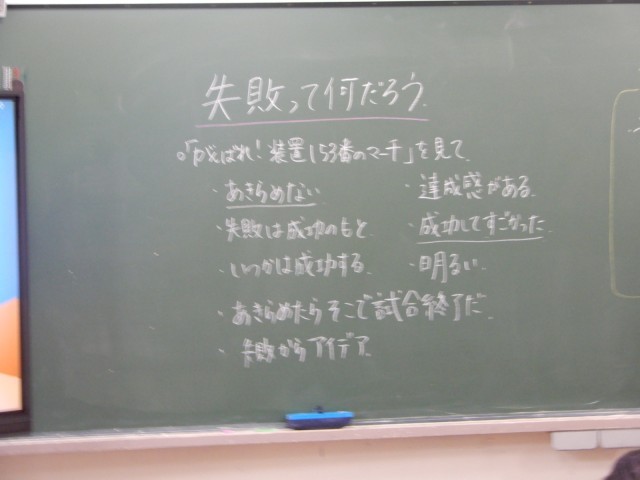 失敗って何だろう.
。「がんばれ!装置153番のマーチ」を見て.
・あきらめない
・達成感がある.
・失敗は成功のもと.
・成功してすごかった.
・いつかは成功する.
・明るい.
・あきらめたらそこで試合終了だ.
・失敗からアイデア.